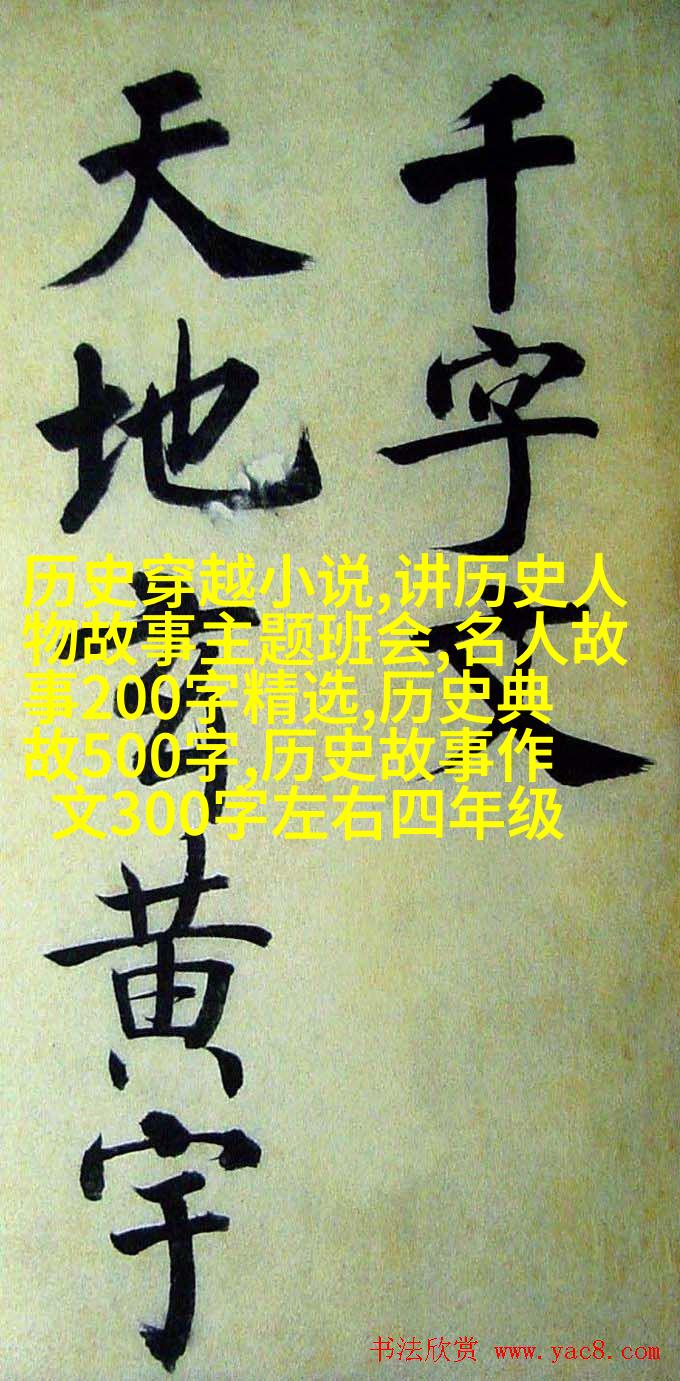 千字文
天地玄黄宇
历史穿越小说,讲历史人
物故事主题班会,名人故
事200字精选,历史典
故500字,历史故事作
文300字左右四年级
书法欣赏 www.yac8.com